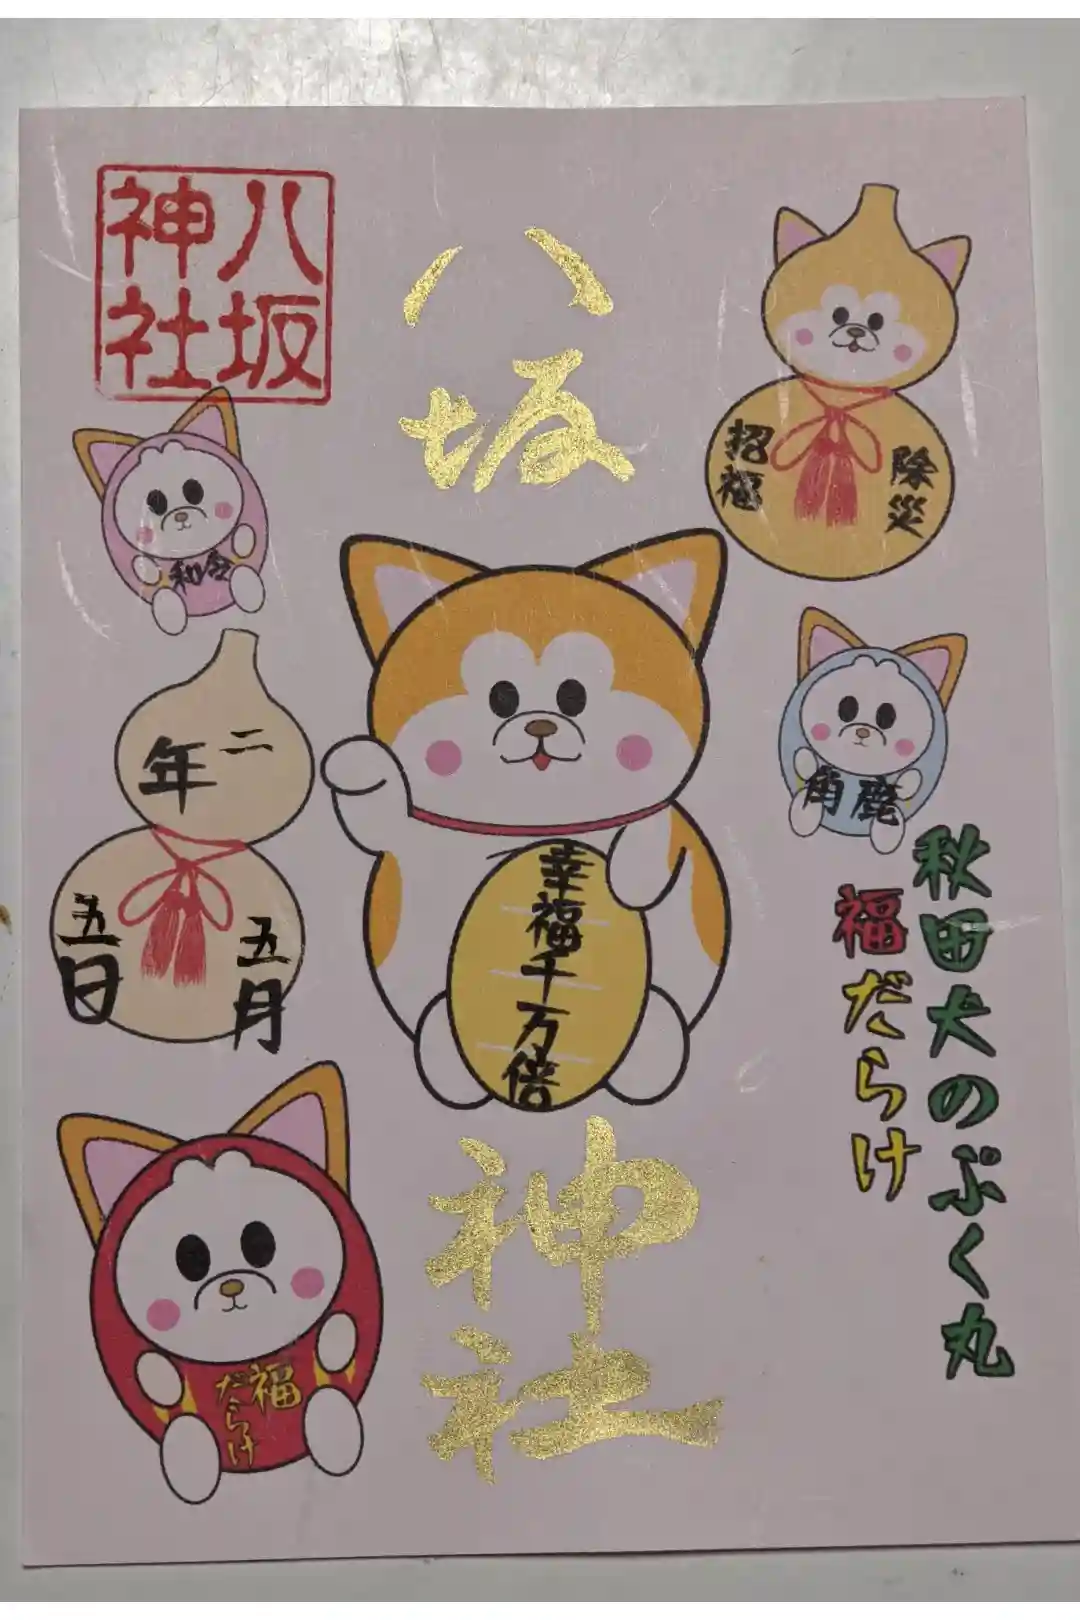 八坂
神社
八坂
神社
除災
招福
令和
二年
五月
五日
鹿角
幸福千万倍
秋田犬のぷく丸
福だらけ
福
だらけ